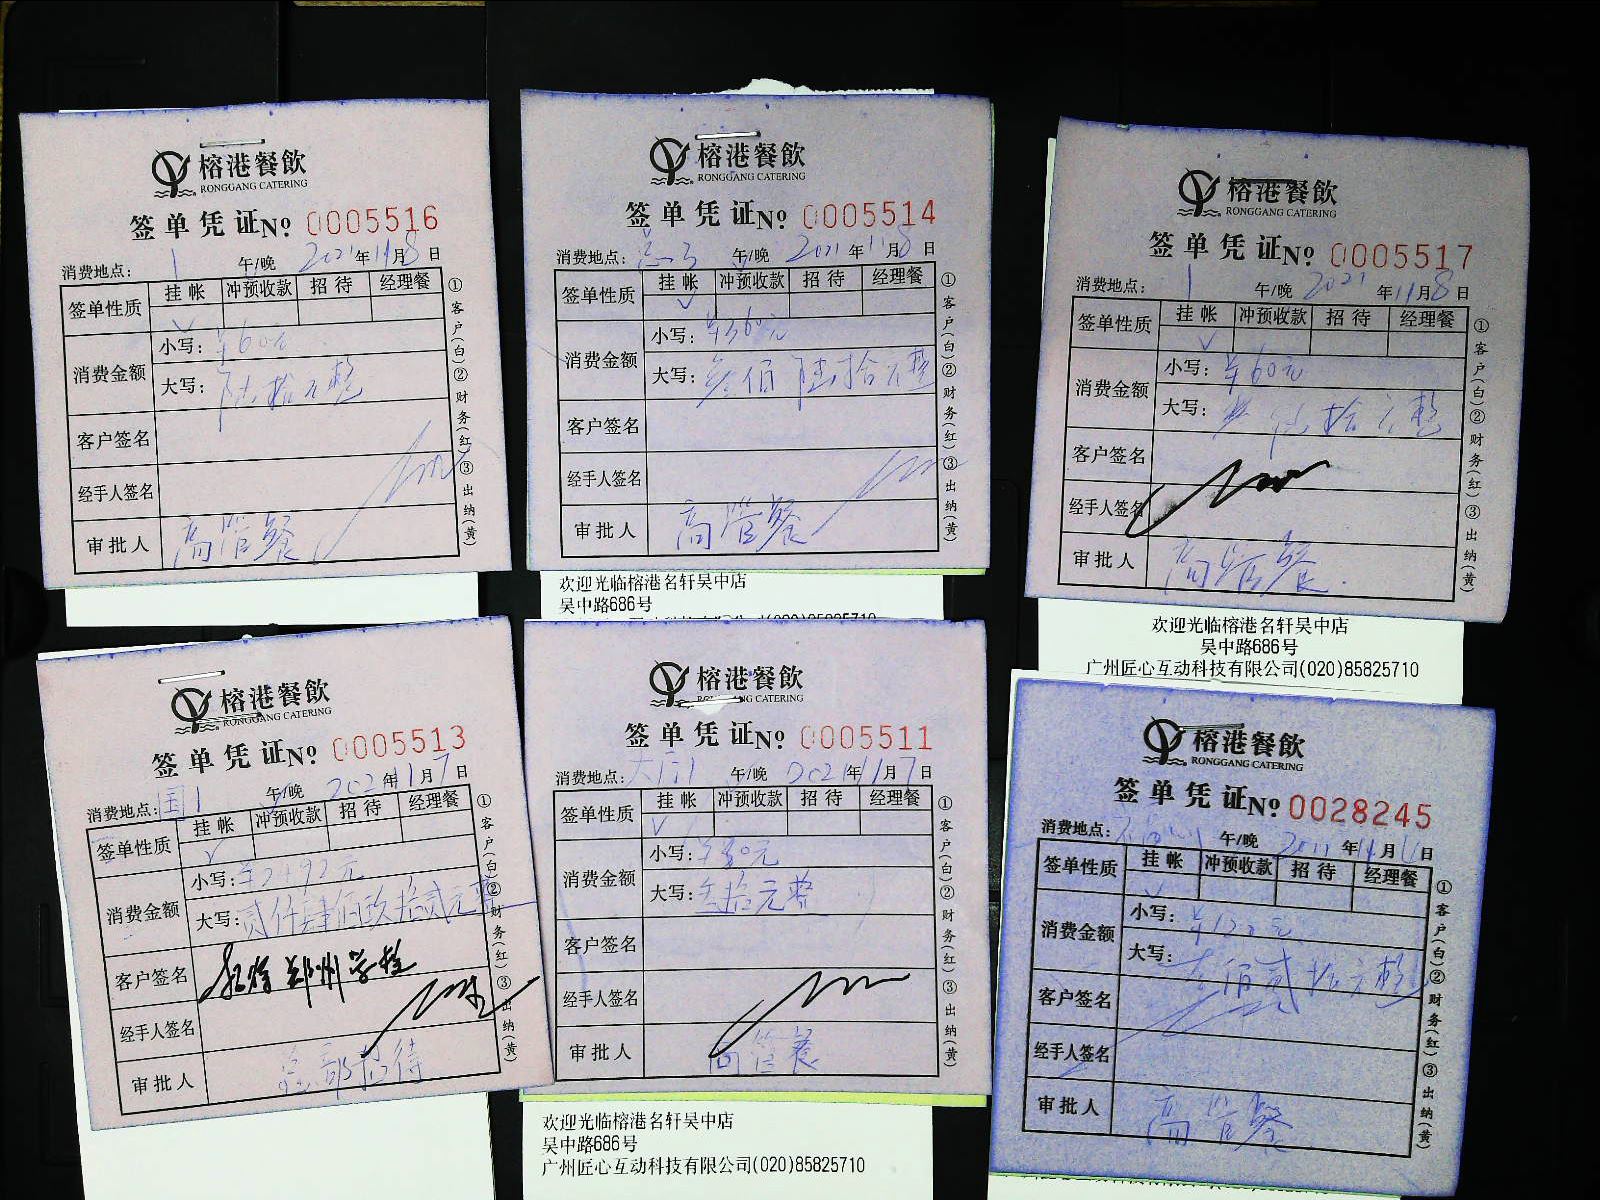 榕港餐飲
RONGGANG CATERING
签单凭证№ 0005516
消费地点: 1 午/晚 2021年11月8日
签单性质 挂帐 冲预收款 招待 经理餐
✓
消费金额
小写: ¥60元
大写: 陆拾元整
客户签名
经手人签名
审批人 高管餐
①客户(白)②财务(红)③出纳(黄)
榕港餐飲
RONGGANG CATERING
签单凭证№ 0005514
消费地点: 午/晚 2021年11月8日
签单性质 挂帐 冲预收款 招待 经理餐
✓
消费金额
小写: ¥360元
大写: 叁佰陆拾元整
客户签名
经手人签名
审批人 高管餐
①客户(白)②财务(红)③出纳(黄)
欢迎光临榕港名轩吴中店
吴中路686号
榕港餐飲
RONGGANG CATERING
签单凭证№ 0005517
消费地点: 1 午/晚 2021年11月8日
签单性质 挂帐 冲预收款 招待 经理餐
✓
消费金额
小写: ¥60元
大写: 陆拾元整
客户签名
经手人签名
审批人 高管餐
①客户(白)②财务(红)③出纳(黄)
欢迎光临榕港名轩吴中店
吴中路686号
广州匠心互动科技有限公司(020)85825710
榕港餐飲
RONGGANG CATERING
签单凭证№ 0005513
消费地点: 国1 午/晚 2021年11月7日
签单性质 挂帐 冲预收款 招待 经理餐
✓
消费金额
小写: ¥2492元
大写: 贰仟肆佰玖拾贰元整
客户签名 郑州学校
经手人签名
审批人 总部招待
①客户(白)②财务(红)③出纳(黄)
榕港餐飲
RONGGANG CATERING
签单凭证№ 0005511
消费地点: 大厅1 午/晚 2021年11月7日
签单性质 挂帐 冲预收款 招待 经理餐
✓
消费金额
小写: ¥30元
大写: 叁拾元整
客户签名
经手人签名
审批人 高管餐
①客户(白)②财务(红)③出纳(黄)
欢迎光临榕港名轩吴中店
吴中路686号
广州匠心互动科技有限公司(020)85825710
榕港餐飲
RONGGANG CATERING
签单凭证№ 0028245
消费地点: 午/晚 年 月 日
签单性质 挂帐 冲预收款 招待 经理餐
✓
消费金额
小写: ¥120元
大写: 壹佰贰拾元整
客户签名
经手人签名
审批人 高管餐
①客户(白)②财务(红)③出纳(黄)